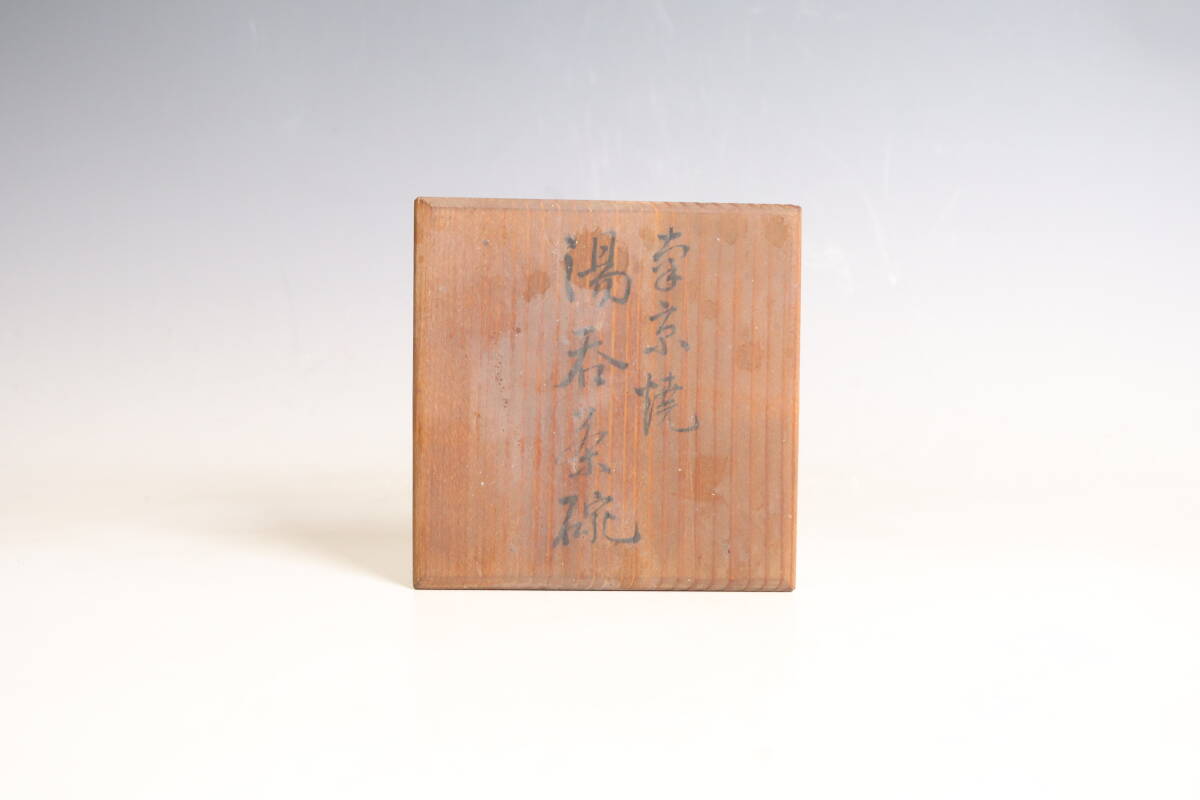 南京焼
湯呑茶碗